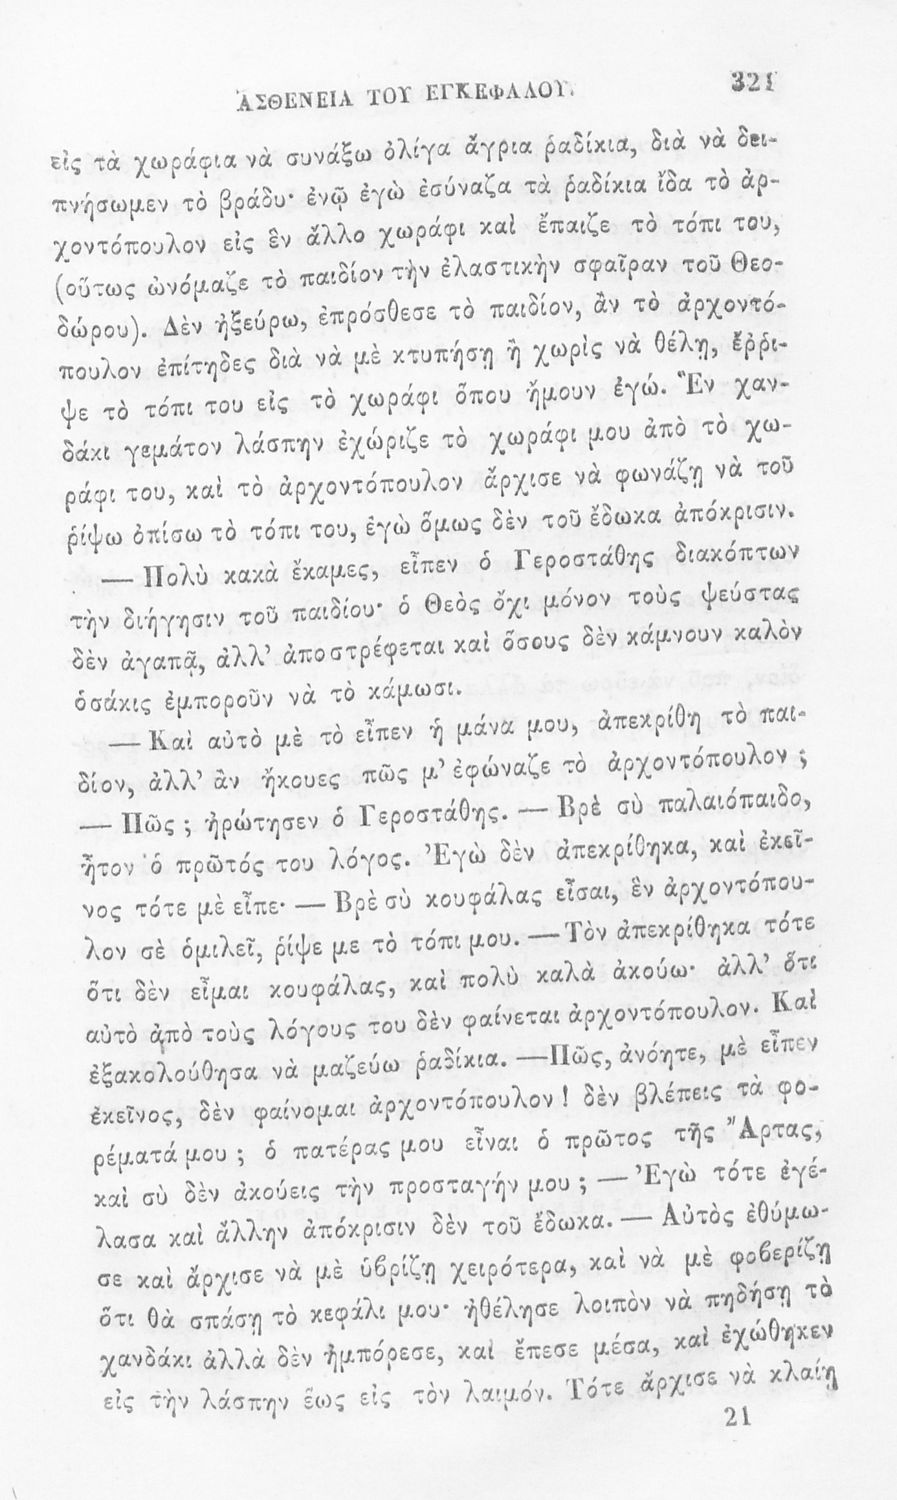 ἈΣΘΕΝΕΙΑ ΤΟΥ ΕΓΚΕΦΑΛΟΥ. 321
εἰς τὰ χωράφια νὰ συνάξω ὀλίγα ἄγρια ῥαδίκια, διὰ νὰ δει-
πνήσωμεν τὸ βράδυ· ἐνῷ ἐγὼ ἐσύναζα τὰ ῥαδίκια ἴδα τὸ ἀρ-
χοντόπουλον εἰς ἓν ἄλλο χωράφι καὶ ἔπαιζε τὸ τόπι του,
(οὕτως ὠνόμαζε τὸ παιδίον τὴν ἐλαστικὴν σφαῖραν τοῦ Θεο-
δώρου). Δὲν ἠξεύρω, ἐπρόσθεσε τὸ παιδίον, ἂν τὸ ἀρχοντό-
πουλον ἐπίτηδες διὰ νὰ μὲ κτυπήσῃ ἢ χωρὶς νὰ θέλῃ, ἔῤῥι-
ψε τὸ τόπι του εἰς τὸ χωράφι ὅπου ἤμουν ἐγώ. Ἓν χαν-
δάκι γεμάτον λάσπην ἐχώριζε τὸ χωράφι μου ἀπὸ τὸ χω-
ράφι του, καὶ τὸ ἀρχοντόπουλον ἄρχισε νὰ φωνάζῃ νὰ τοῦ
ῥίψω ὀπίσω τὸ τόπι του, ἐγὼ ὅμως δὲν τοῦ ἔδωκα ἀπόκρισιν.
— Πολὺ κακὰ ἔκαμες, εἶπεν ὁ Γεροστάθης διακόπτων
τὴν διήγησιν τοῦ παιδίου· ὁ Θεὸς ὄχι μόνον τοὺς ψεύστας
δὲν ἀγαπᾷ, ἀλλ’ ἀποστρέφεται καὶ ὅσους δὲν κάμνουν καλὸν
ὁσάκις ἐμποροῦν νὰ τὸ κάμωσι.
— Καὶ αὐτὸ μὲ τὸ εἶπεν ἡ μάνα μου, ἀπεκρίθη τὸ παι-
δίον, ἀλλ’ ἂν ἤκουες πῶς μ’ ἐφώναζε τὸ ἀρχοντόπουλον ;
— Πῶς ; ἠρώτησεν ὁ Γεροστάθης. — Βρὲ σὺ παλαιόπαιδο,
ἦτον ὁ πρῶτός του λόγος. Ἐγὼ δὲν ἀπεκρίθηκα, καὶ ἐκεῖ-
νος τότε μὲ εἶπε· — Βρὲ σὺ κουφάλας εἶσαι, ἓν ἀρχοντόπου-
λον σὲ ὁμιλεῖ, ῥίψε με τὸ τόπι μου. — Τὸν ἀπεκρίθηκα τότε
ὅτι δὲν εἶμαι κουφάλας, καὶ πολὺ καλὰ ἀκούω· ἀλλ’ ὅτι
αὐτὸ ἀπὸ τοὺς λόγους του δὲν φαίνεται ἀρχοντόπουλον. Καὶ
ἐξακολούθησα νὰ μαζεύω ῥαδίκια. —Πῶς, ἀνόητε, μὲ εἶπεν
ἐκεῖνος, δὲν φαίνομαι ἀρχοντόπουλον ! δὲν βλέπεις τὰ φο-
ρέματά μου ; ὁ πατέρας μου εἶναι ὁ πρῶτος τῆς Ἄρτας,
καὶ σὺ δὲν ἀκούεις τὴν προσταγήν μου ; — Ἐγὼ τότε ἐγέ-
λασα καὶ ἄλλην ἀπόκρισιν δὲν τοῦ ἔδωκα. — Αὐτὸς ἐθύμω-
σε καὶ ἄρχισε νὰ μὲ ὑβρίζῃ χειρότερα, καὶ νὰ μὲ φοβερίζῃ
ὅτι θὰ σπάσῃ τὸ κεφάλι μου· ἠθέλησε λοιπὸν νὰ πηδήσῃ τὸ
χανδάκι ἀλλὰ δὲν ἠμπόρεσε, καὶ ἔπεσε μέσα, καὶ ἐχώθηκεν
εἰς τὴν λάσπην ἕως εἰς τὸν λαιμόν. Τότε ἄρχισε νὰ κλαίῃ
21